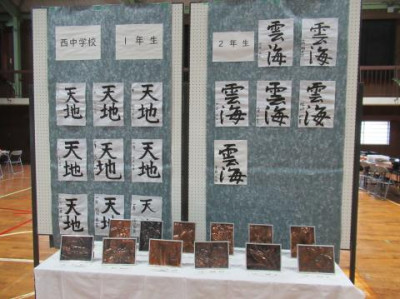 西中学校
1年生
天地
天地
天地
天地
天地
天地
天地
天地
天
2年生
雲海
雲海
雲海
雲海
雲海
雲海